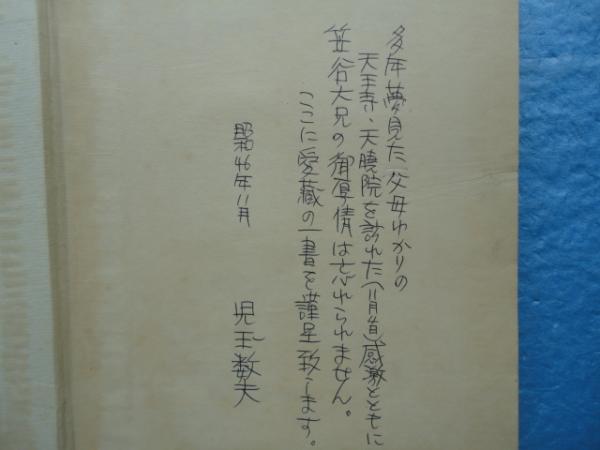 多年夢見た父母ゆかりの
天王寺、天暁院を訪れた(11月4日)感激とともに
笠谷大兄の御厚情は忘れられません。
ここに愛蔵の一書を謹呈致します。
昭和46年11月
児玉数夫